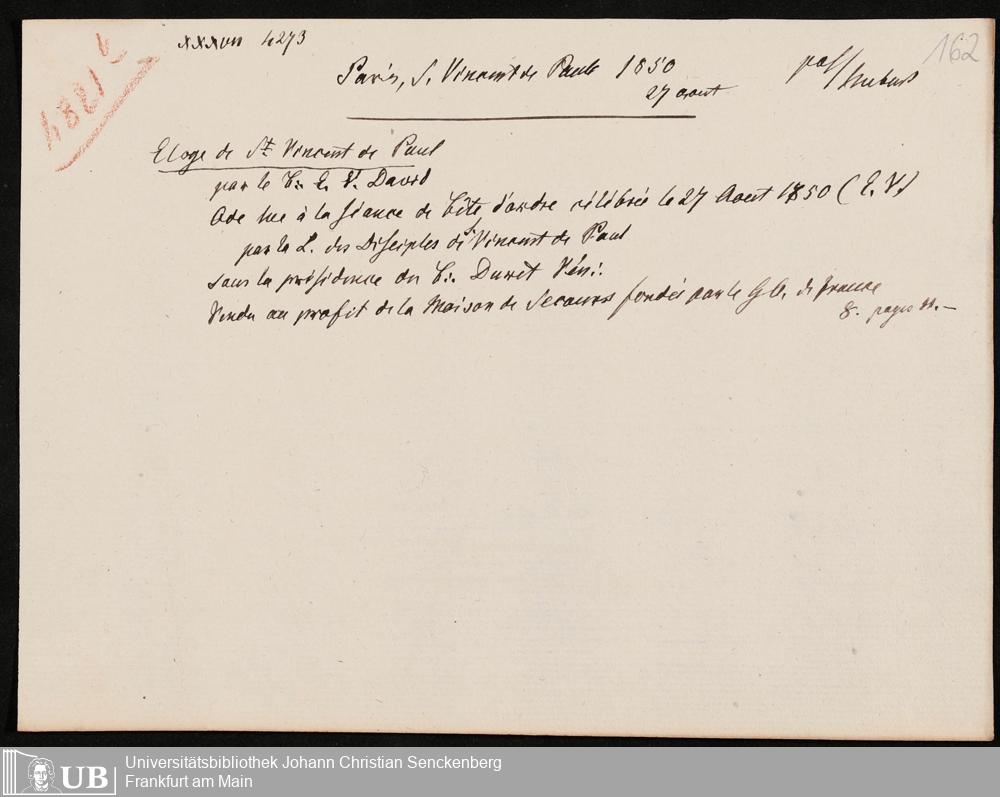 XXXVII 4273
162
Paris, S. Vincent de Paule 1850
27 aout
Eloge de St. Vincent de Paul
par le F∴ E. V. David
Ode lue à la séance de fête d'ordre célébrée le 27 Aout 1850 (E. V.)
par la L. des Disciples de S. Vincent de Paul
sous la présidence du F∴ Duret Vén∴
Vendu au profit de la Maison de Secours fondée par le G O. de france
8. pages
Universitätsbibliothek Johann Christian Senckenberg
Frankfurt am Main
UB